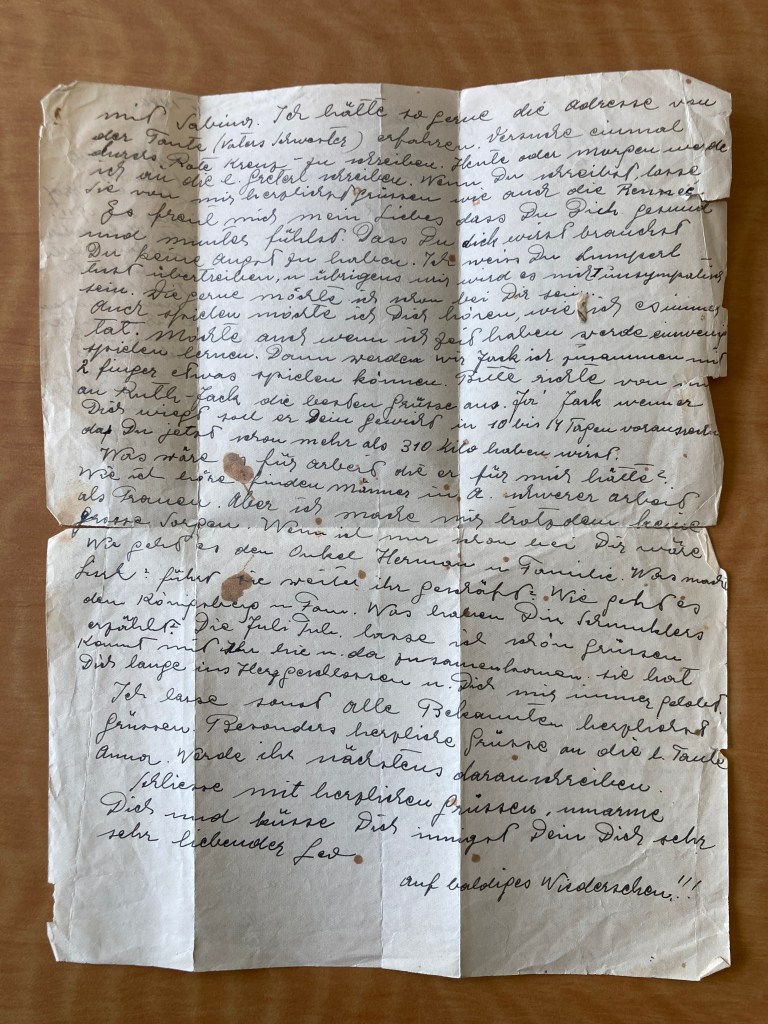 mit Sabina. Ich hätte so gerne die Adresse von
der Tante (Vaters Schwester) erfahren. Versuche einmal
durchs Rote Kreuz zu schreiben. Heute oder morgen werde
ich an die l. Greterl schreiben. Wenn Du schreibst, lasse
sie von mir herzlichst grüssen wie auch die
Es freut mich mein Liebes dass Du Dich gesund
und munter fühlst. Dass Du dick wirst brauchst
Du keine Angst zu haben. Ich wenn Du Lumperl
lust übertreiben, u übrigens mir wird es nicht unsympatisch
sein. Wie gerne möchte ich schon bei Dir sein.
Auch spielen möchte ich Dich hören, wie ich es immer
tat. Möchte auch wenn ich Zeit haben werde ein wenig
spielen lernen. Dann werden wir Jack ich zusammen mit
2 finger etwas spielen können. Bitte richte von mir
an Ruth-Jack die besten Grüsse aus. Jack wenn er
Dich wiegt soll er Dein gewicht in 10 bis 14 Tagen
daß Du jetzt schon mehr als 310 Kilo haben wirst.
Was wäre für arbeit die er für mich hätte?
Wie ich höre finden Männer in A. schwerer arbeit
als Frauen. Aber ich mache mir trotzdem keine
grosse Sorgen. Wenn ich nur schon bei Dir wäre
Wie geht es den Onkel Herman u Familie. Was macht
führt sie weiter ihr geschäft? Wie geht es
den Königsberg u Fam. Was haben Dir Schmuklers
erzählt? Die Juli Tub. lasse ich schön grüssen
Kommt mit Ihr hie u. da zusammenkomen. sie hat
Dich lange ins Herz geschlossen u. Dich mir immer gelobt.
Ich lasse sonst alle Bekannten herzlichst
grüssen. Besonders herzliche Grüsse an die l. Tante
Anna. Werde ihr nächstens daran schreiben.
Schliesse mit herzlichen grüssen, umarme
Dich und küsse Dich innigst Dein Dich sehr
sehr liebender Leo
auf baldiges Wiedersehen!!!